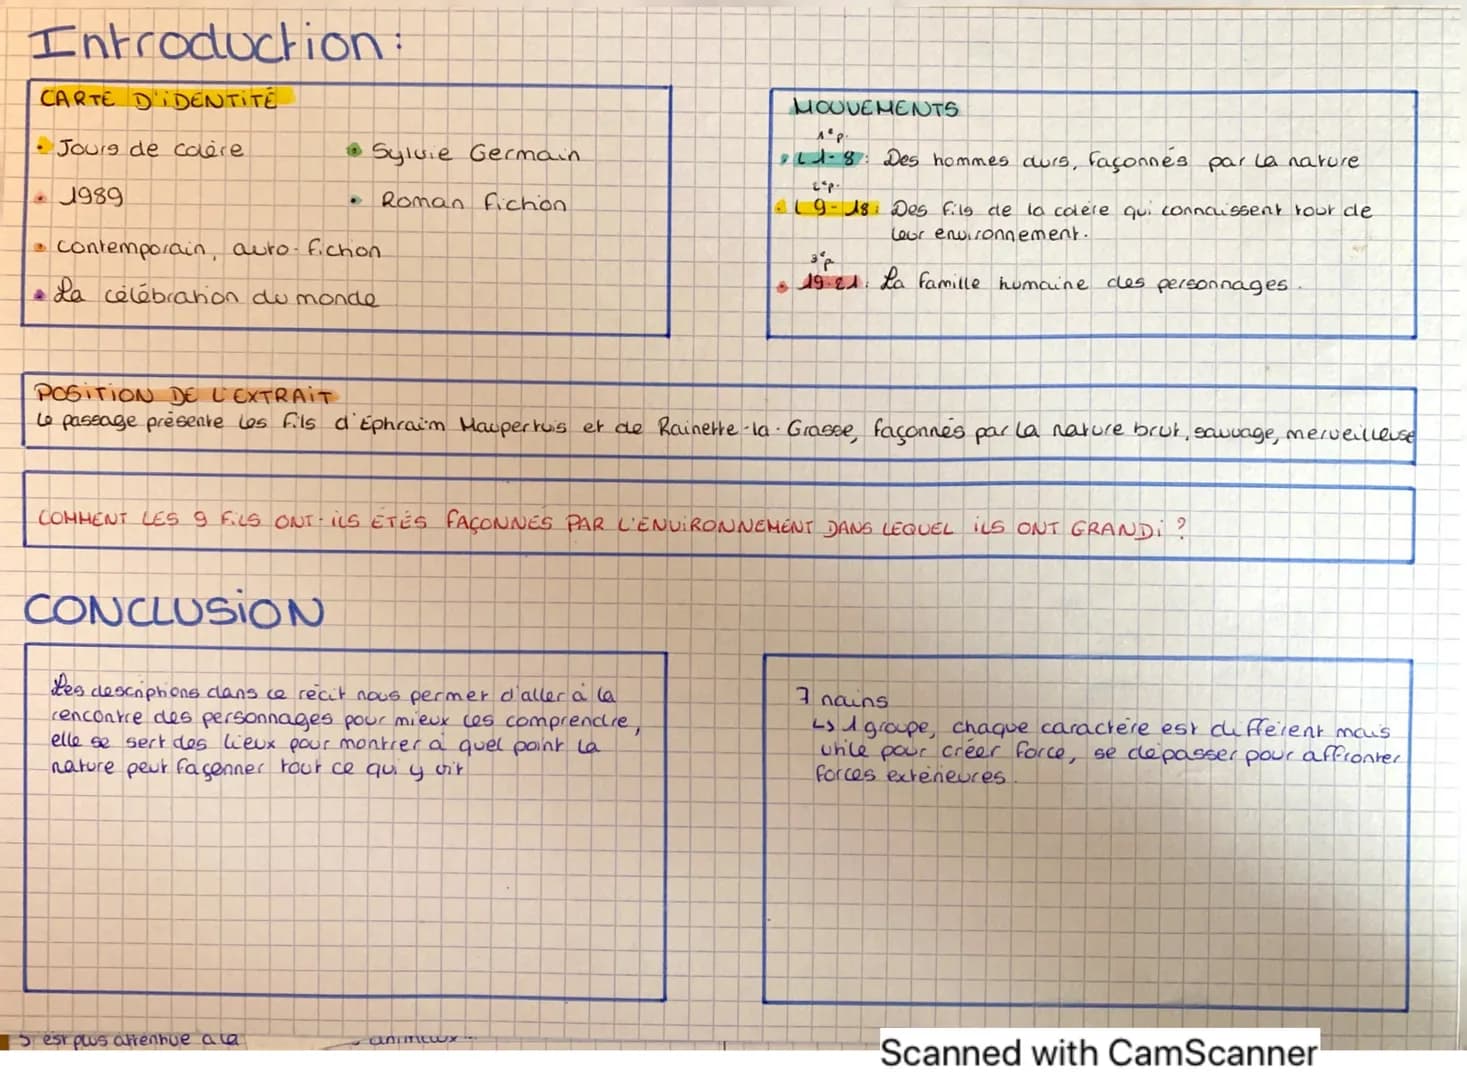 Introduction:
CARTE D'iDENTiTÉ
• Jours de colère
• Sylvie Germain
• 1989
• Roman fiction
• contemporain, auto-fiction
• La célébration du monde
MOUVEMENTS
1e p.
• L 1-8: Des hommes durs, façonnés par la nature
2e p.
• L 9-18: Des fils de la colère qui connaissent tout de
leur environnement.
3e p
• 19-21: La famille humaine des personnages.
POSiTiON DE L'EXTRAiT
Le passage présente les fils d'Ephraïm Maupertuis et de Rainette-la-Grasse, façonnés par la nature brut, sauvage, merveilleuse
COMMENT LES 9 FiLS ONT-iLS ÉTÉS FAÇONNÉS PAR L'ENViRONNEMENT DANS LEQUEL iLS ONT GRANDi ?
CONCLUSiON
Les descriptions dans ce récit nous permet d'aller à la
rencontre des personnages pour mieux les comprendre,
elle se sert des lieux pour montrer à quel point la
nature peut façonner tout ce qui y vit
7 nains
↳ 1 groupe, chaque caractère est différent mais
utile pour créer force, se dépasser pour affronter
forces extérieures.
est plus attentive à la
animaux...
Scanned with CamScanner